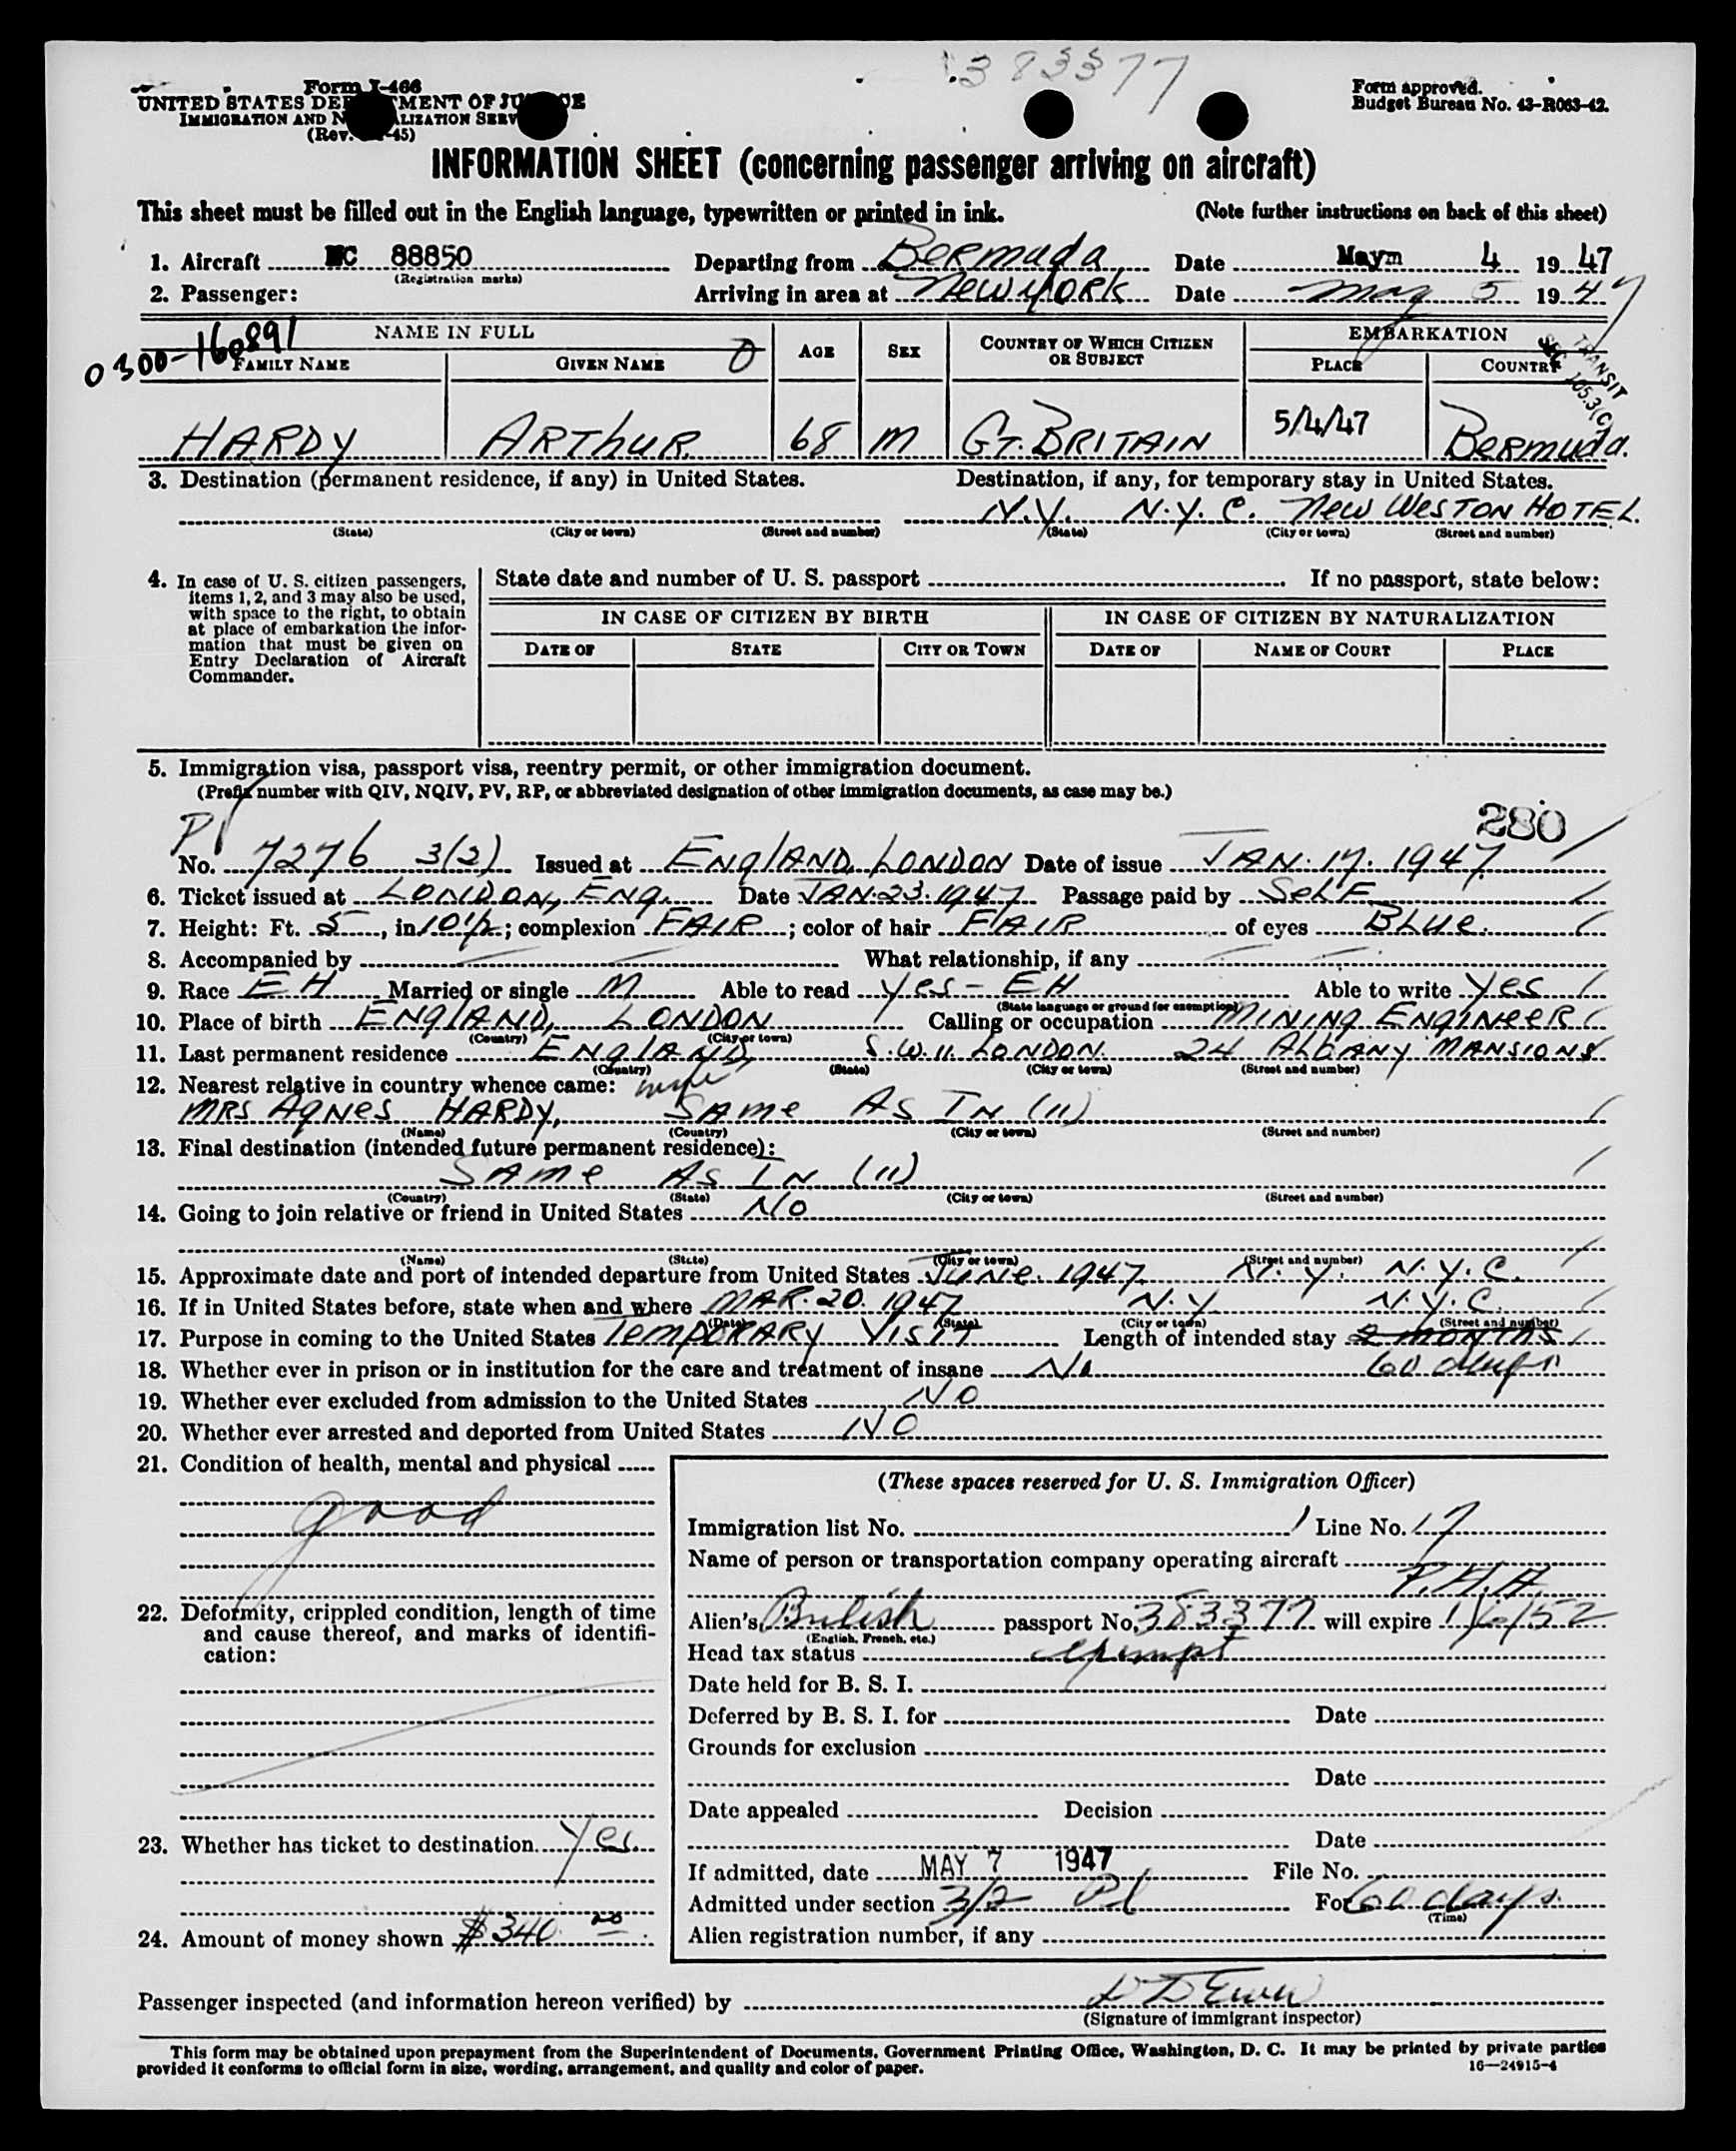 383377
Form I-466
UNITED STATES DEPARTMENT OF JUSTICE
IMMIGRATION AND NATURALIZATION SERVICE
(Rev. -45)
Form approved.
Budget Bureau No. 43-R063-42.
INFORMATION SHEET (concerning passenger arriving on aircraft)
This sheet must be filled out in the English language, typewritten or printed in ink. (Note further instructions on back of this sheet)
1. Aircraft NC 88850 Departing from Bermuda Date Maym 4 1947
(Registration marks)
2. Passenger: Arriving in area at New York Date May 5 1947
0300-160891
NAME IN FULL O AGE SEX COUNTRY OF WHICH CITIZEN OR SUBJECT EMBARKATION
FAMILY NAME GIVEN NAME PLACE COUNTRY
TRANSIT
SEC. 105.3(C)
HARDY ARTHUR 68 M GT. BRITAIN 5/4/47 BERMUDA.
3. Destination (permanent residence, if any) in United States. Destination, if any, for temporary stay in United States.
N.Y. N.Y.C. NEW WESTON HOTEL.
(State) (City or town) (Street and number) (State) (City or town) (Street and number)
4. In case of U. S. citizen passengers, items 1, 2, and 3 may also be used, with space to the right, to obtain at place of embarkation the information that must be given on Entry Declaration of Aircraft Commander.
State date and number of U. S. passport If no passport, state below:
IN CASE OF CITIZEN BY BIRTH IN CASE OF CITIZEN BY NATURALIZATION
DATE OF STATE CITY OR TOWN DATE OF NAME OF COURT PLACE
5. Immigration visa, passport visa, reentry permit, or other immigration document.
(Prefix number with QIV, NQIV, PV, RP, or abbreviated designation of other immigration documents, as case may be.)
280
PV
No. 7276 3(2) Issued at ENGLAND, LONDON Date of issue JAN. 17. 1947.
6. Ticket issued at LONDON, ENG. Date JAN. 23. 1947 Passage paid by SELF
7. Height: Ft. 5, in. 10½; complexion FAIR; color of hair FAIR of eyes BLUE.
8. Accompanied by — — What relationship, if any — —
9. Race EH Married or single M Able to read Yes - EH Able to write Yes
(State language or ground for exemption)
10. Place of birth ENGLAND, LONDON Calling or occupation MINING ENGINEER
(Country) (City or town)
11. Last permanent residence ENGLAND, S.W.11. LONDON. 24 ALBANY MANSIONS
(Country) (State) (City or town) (Street and number)
12. Nearest relative in country whence came: wife
MRS AGNES HARDY, SAME AS IN (11)
(Name) (Country) (City or town) (Street and number)
13. Final destination (intended future permanent residence):
SAME AS IN (11)
(Country) (State) (City or town) (Street and number)
14. Going to join relative or friend in United States NO
(Name) (State) (City or town) (Street and number)
15. Approximate date and port of intended departure from United States JUNE. 1947. N.Y. N.Y.C.
16. If in United States before, state when and where MAR. 20. 1947 N.Y. N.Y.C.
(Date) (State) (City or town) (Street and number)
17. Purpose in coming to the United States TEMPORARY VISIT Length of intended stay 2 MONTHS
60 days
18. Whether ever in prison or in institution for the care and treatment of insane No
19. Whether ever excluded from admission to the United States NO
20. Whether ever arrested and deported from United States NO
21. Condition of health, mental and physical
good
22. Deformity, crippled condition, length of time and cause thereof, and marks of identification:
23. Whether has ticket to destination. Yes.
24. Amount of money shown $340.00
(These spaces reserved for U. S. Immigration Officer)
Immigration list No. 1 Line No. 17
Name of person or transportation company operating aircraft
P.A.A
Alien's British passport No. 383377 will expire 1/6/52
(English, French, etc.)
Head tax status exempt
Date held for B. S. I.
Deferred by B. S. I. for Date
Grounds for exclusion
Date
Date appealed Decision
Date
If admitted, date MAY 7 1947 File No.
Admitted under section 3/2 For 60 days.
(Time)
Alien registration number, if any
Passenger inspected (and information hereon verified) by
(Signature of immigrant inspector)
This form may be obtained upon prepayment from the Superintendent of Documents, Government Printing Office, Washington, D. C. It may be printed by private parties
provided it conforms to official form in size, wording, arrangement, and quality and color of paper. 16—24915-4